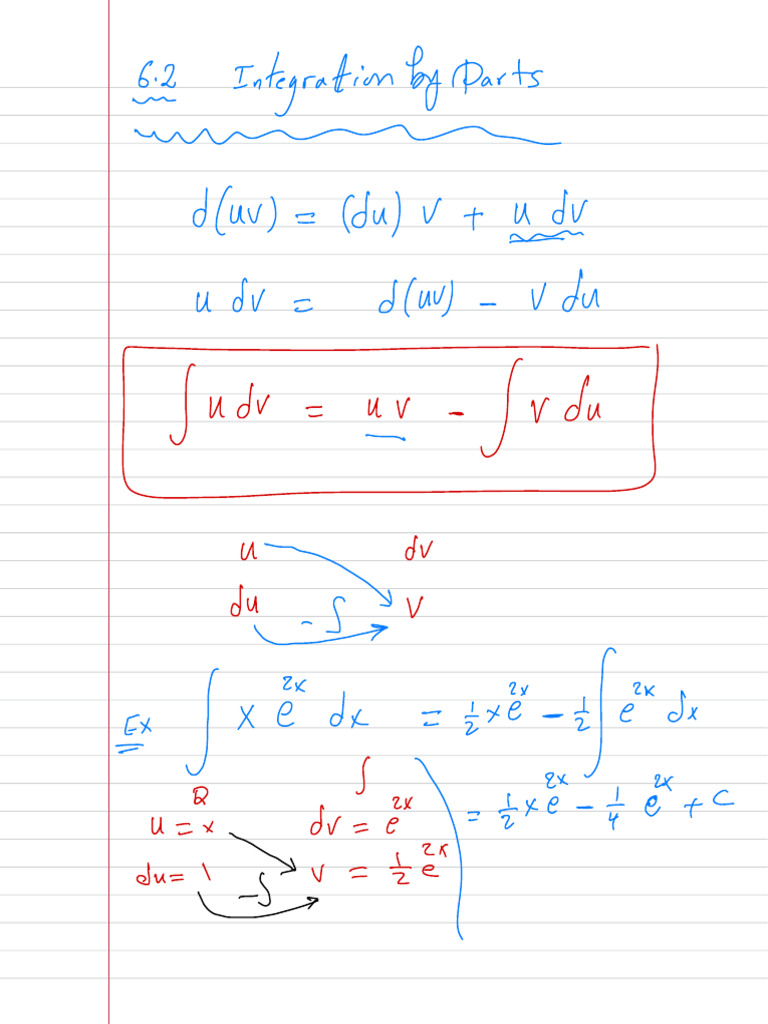 6.2 Integration by Parts
d(uv) = (du) v + u dv
u dv = d(uv) - v du
∫ u dv = u v - ∫ v du
u dv
du - ∫ v
Ex ∫ x e^{2x} dx = 1/2 x e^{2x} - 1/2 ∫ e^{2x} dx
= 1/2 x e^{2x} - 1/4 e^{2x} + C
∫
u = x dv = e^{2x}
du = 1 -∫ v = 1/2 e^{2x}